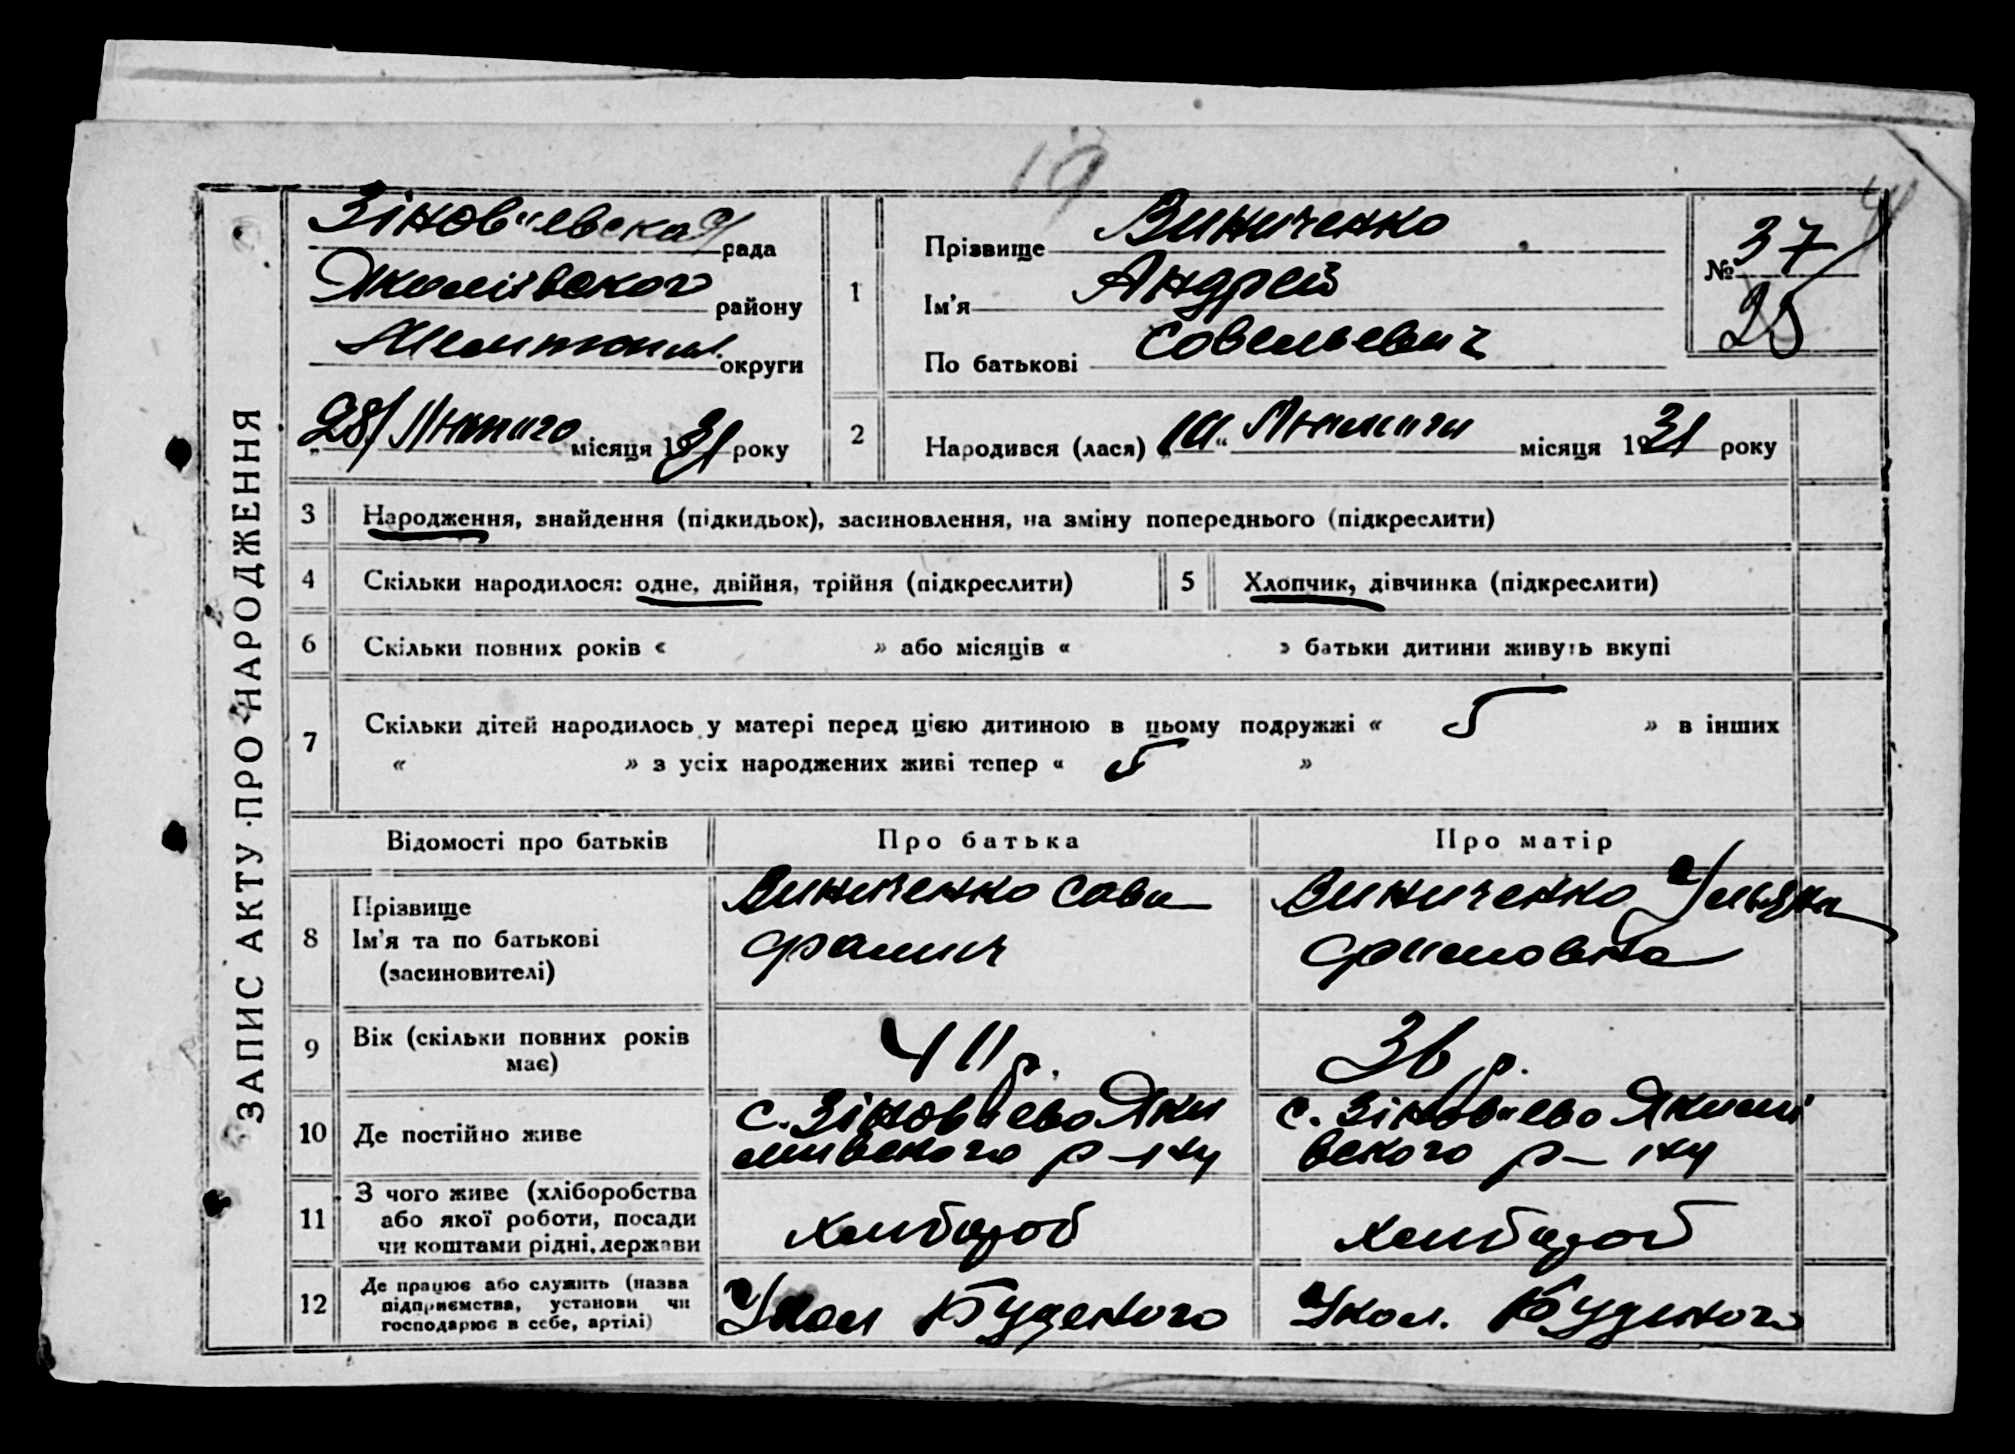 19
ЗАПИС АКТУ ПРО НАРОДЖЕННЯ
Зінов'евска рада
району
Мелитопил. округи
28 Лютого місяця 1931 року
1
Прізвище Виниченко
Ім'я Андрей
По батькові Совельевич
№ 37
25
2
Народився (лася) „10“ місяця 1931 року
3 Народження, знайдення (підкидьок), засиновлення, на зміну попереднього (підкреслити)
4 Скільки народилося: одне, двійня, трійня (підкреслити)
5 Хлопчик, дівчинка (підкреслити)
6 Скільки повних років « » або місяців « » батьки дитини живуть вкупі
7 Скільки дітей народилось у матері перед цією дитиною в цьому подружжі « 5 » в інших
« » з усіх народжених живі тепер « 5 »
Відомості про батьків
Про батька
Про матір
8
Прізвище
Ім'я та по батькові
(засиновителі)
Виниченко Сава
Виниченко Ульяна
9
Вік (скільки повних років
має)
41 р.
36 р.
10 Де постійно живе
с. Зінов'ево Яки
мивского р-ну
с. Зінов'ево Якимі
вского р-ну
11
З чого живе (хліборобства
або якої роботи, посади
чи коштами рідні, держави
хлибороб
хлибороб
12
Де працює або служить (назва
підприємства, установи чи
господарює в себе, артілі)
Укол Буденого
Укол. Буденого